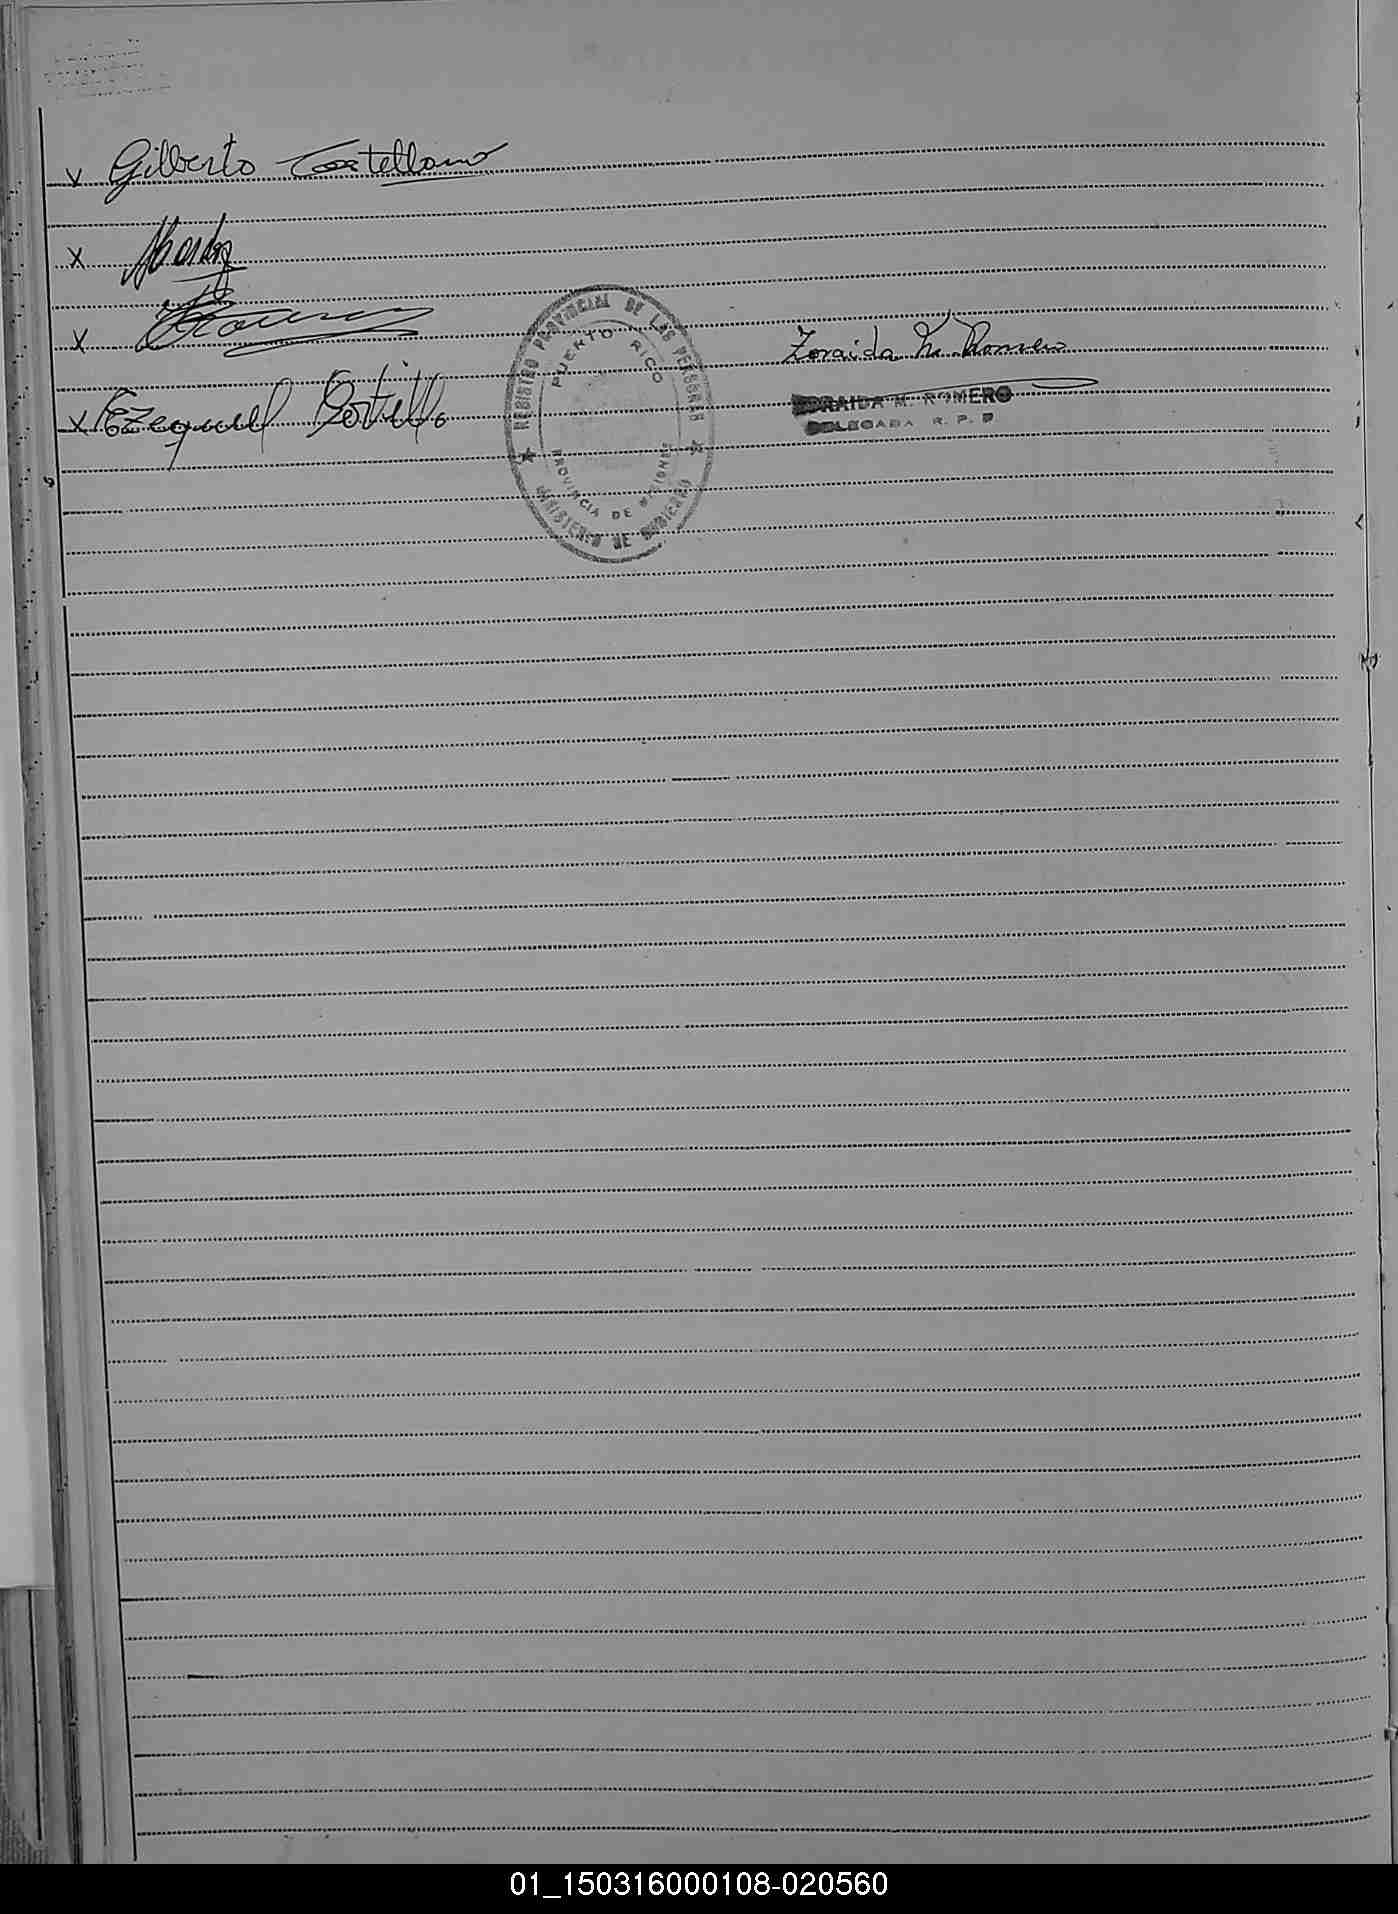 x Gilberto Castellano
x
x
x Ezequiel Portillo
REGISTRO PROVINCIAL DE LAS PERSONAS
PUERTO RICO
PROVINCIA DE MISIONES
MINISTERIO DE GOBIERNO
Zoraida M. Romero
ZORAIDA M. ROMERO
DELEGADA R. P. P.
01_150316000108-020560